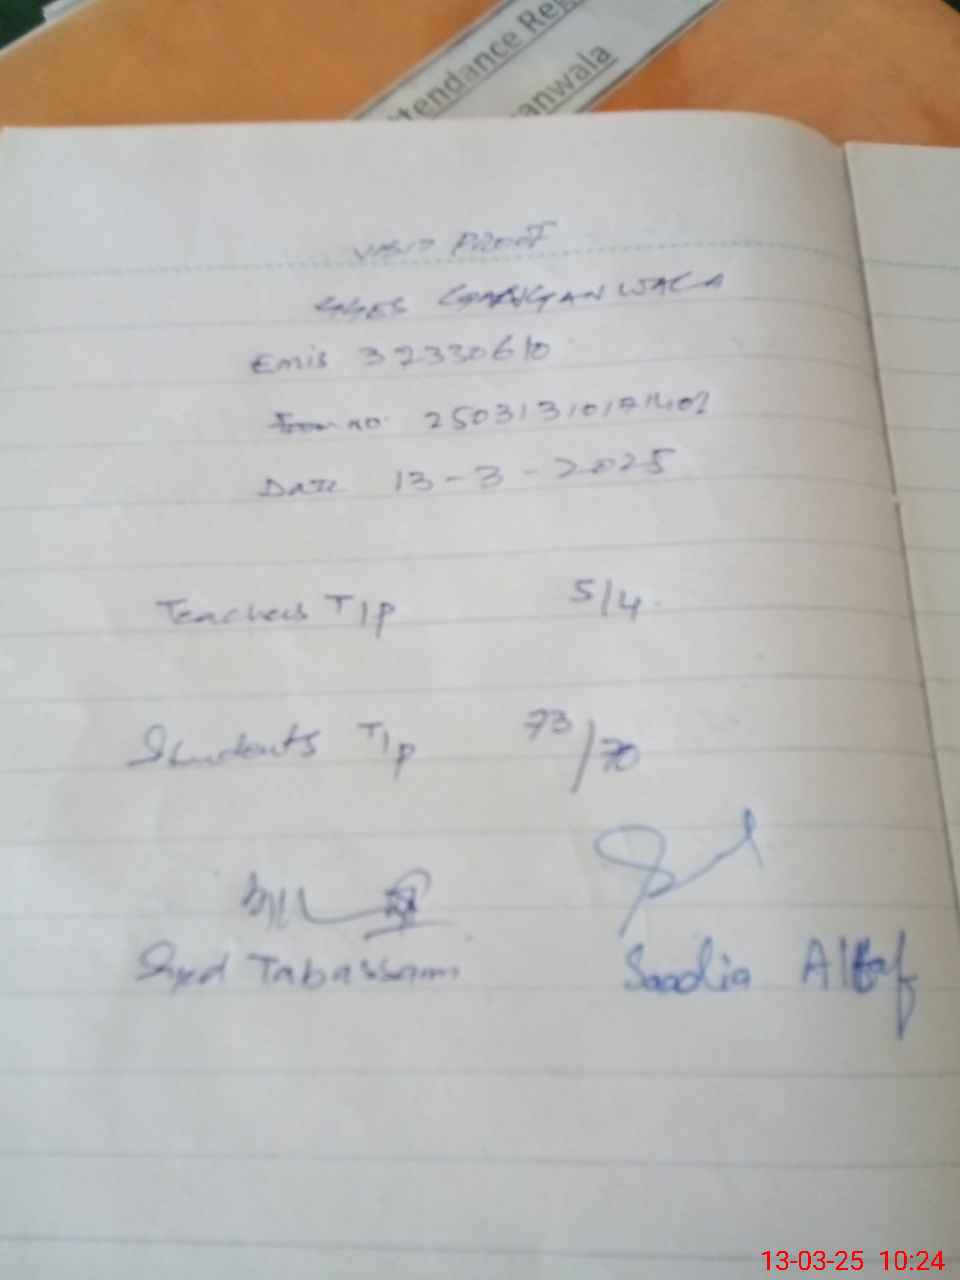 ttendance Reg
anwala
VISIT PROOF
Emis 32330610
no. 2503131017
Date 13-3-2025
Teachers T/P 5/4
Students T/P 73/70
Syed Tabassam Saadia Altaf
13-03-25 10:24